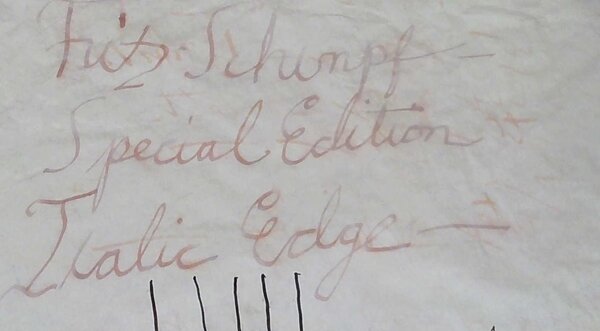 Fritz Schimpf –
Special Edition
Italic Edge —